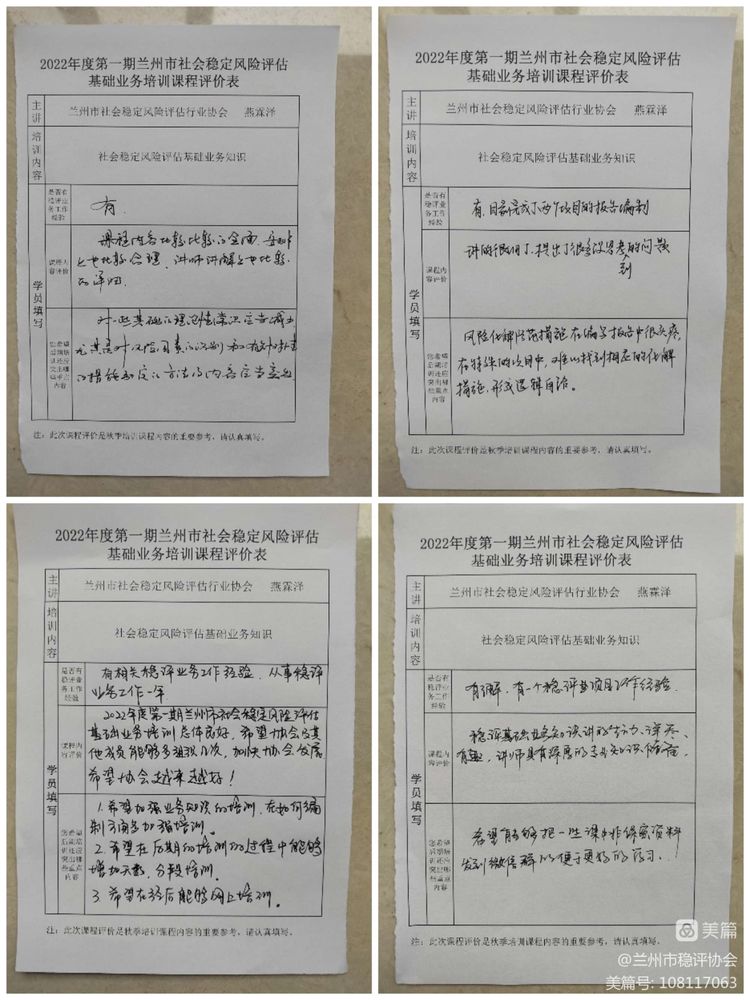 2022年度第一期兰州市社会稳定风险评估
基础业务培训课程评价表
主讲
兰州市社会稳定风险评估行业协会 燕霖泽
培训内容
社会稳定风险评估基础业务知识
学员填写
是否有稳评业务工作经验
有.
课程内容评价
课程内容比较比较的全面,
合理,讲师讲解也比较
的详细
您希望后期培训还应突出哪些重点内容
对一些基础的理论性常识应当
尤其是对风险因素的识别和
的措施制定的方法的内容应当
注:此次课程评价是秋季培训课程内容的重要参考,请认真填写。
2022年度第一期兰州市社会稳定风险评估
基础业务培训课程评价表
主讲
兰州市社会稳定风险评估行业协会 燕霖泽
培训内容
社会稳定风险评估基础业务知识
学员填写
是否有稳评业务工作经验
有.目前完成了两个项目的报告编制
课程内容评价
讲的很细了.提出了很多没思考到的问题
您希望后期培训还应突出哪些重点内容
风险化解防范措施在编写报告中很头疼,
在特殊的项目中,难以找到相应的化解
措施,形成逻辑自洽。
注:此次课程评价是秋季培训课程内容的重要参考,请认真填写。
2022年度第一期兰州市社会稳定风险评估
基础业务培训课程评价表
主讲
兰州市社会稳定风险评估行业协会 燕霖泽
培训内容
社会稳定风险评估基础业务知识
学员填写
是否有稳评业务工作经验
有相关稳评业务工作经验,从事稳评
业务工作一年
课程内容评价
2022年度第一期兰州市社会稳定风险评估
基础业务培训总体良好,希望协会及其
他成员能够多组织几次,加快协会发展
希望协会越来越好!
您希望后期培训还应突出哪些重点内容
1.希望加强业务知识的培训,在如何编
制方面多加强培训。
2.希望在后期的培训的过程中能够
增加天数,分段培训。
3.希望在经后能够网上培训。
注:此次课程评价是秋季培训课程内容的重要参考,请认真填写。
2022年度第一期兰州市社会稳定风险评估
基础业务培训课程评价表
主讲
兰州市社会稳定风险评估行业协会 燕霖泽
培训内容
社会稳定风险评估基础业务知识
学员填写
是否有稳评业务工作经验
有了解,有一个稳评类项目工作经验.
课程内容评价
稳评基础业务知识讲的生动、详尽、
有趣,讲师具有深厚的专业知识储备.
您希望后期培训还应突出哪些重点内容
希望能够把一些课中非保密资料
发到微信群以便于更好的学习..!
注:此次课程评价是秋季培训课程内容的重要参考,请认真填写。
美篇
@兰州市稳评协会
美篇号: 108117063